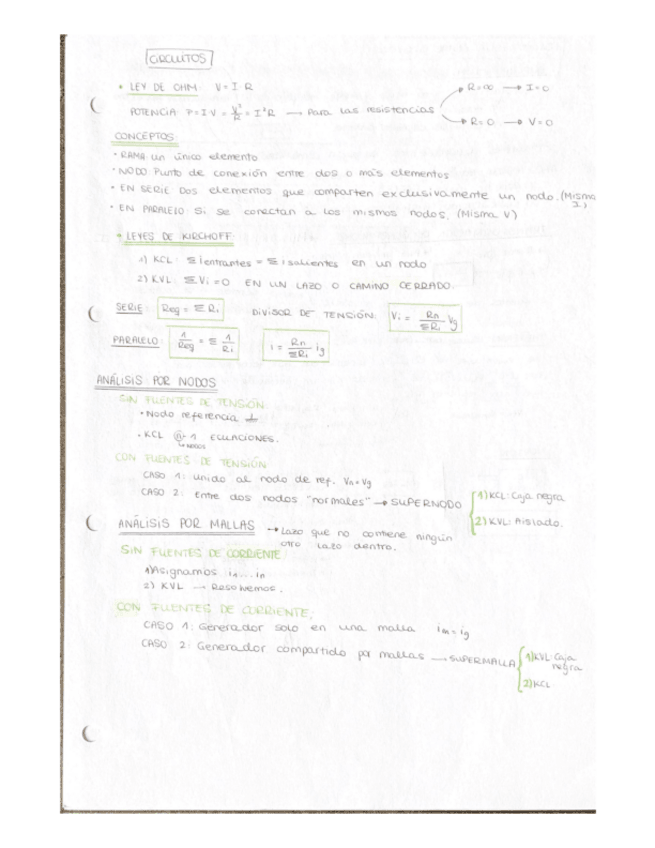 CIRCUITOS
• LEY DE OHM: V = I R
R=∞ → I=0
POTENCIA: P = I V = V²/R = I²R → Para las resistencias
R=0 → V=0
CONCEPTOS:
• RAMA: un único elemento
• NODO: Punto de conexión entre dos o más elementos
• EN SERIE: Dos elementos que comparten exclusivamente un nodo. (Misma I.)
• EN PARALELO: Si se conectan a los mismos nodos. (Misma V)
• LEYES DE KIRCHOFF:
1) KCL: Σ i entrantes = Σ i salientes en un nodo
2) KVL: Σ Vi = 0 EN UN LAZO O CAMINO CERRADO.
SERIE: Req = Σ Ri DIVISOR DE TENSIÓN: Vi = Rn/ΣRi Vg
PARALELO: 1/Req = Σ 1/Ri i = Rn/ΣRi ig
ANÁLISIS POR NODOS
SIN FUENTES DE TENSIÓN:
• Nodo referencia ⏚
• KCL n-1 ECUACIONES.
nodos
CON FUENTES DE TENSIÓN
CASO 1: unido al nodo de ref. Vn=Vg
CASO 2: Entre dos nodos "normales" → SUPERNODO
1) KCL: Caja negra
2) KVL: Aislado.
ANÁLISIS POR MALLAS → Lazo que no contiene ningún
otro lazo dentro.
SIN FUENTES DE CORRIENTE
1) Asignamos i1... in
2) KVL → Resolvemos.
CON FUENTES DE CORRIENTE:
CASO 1: Generador solo en una malla im = ig
CASO 2: Generador compartido por mallas → SUPERMALLA
1) KVL: Caja
negra
2) KCL